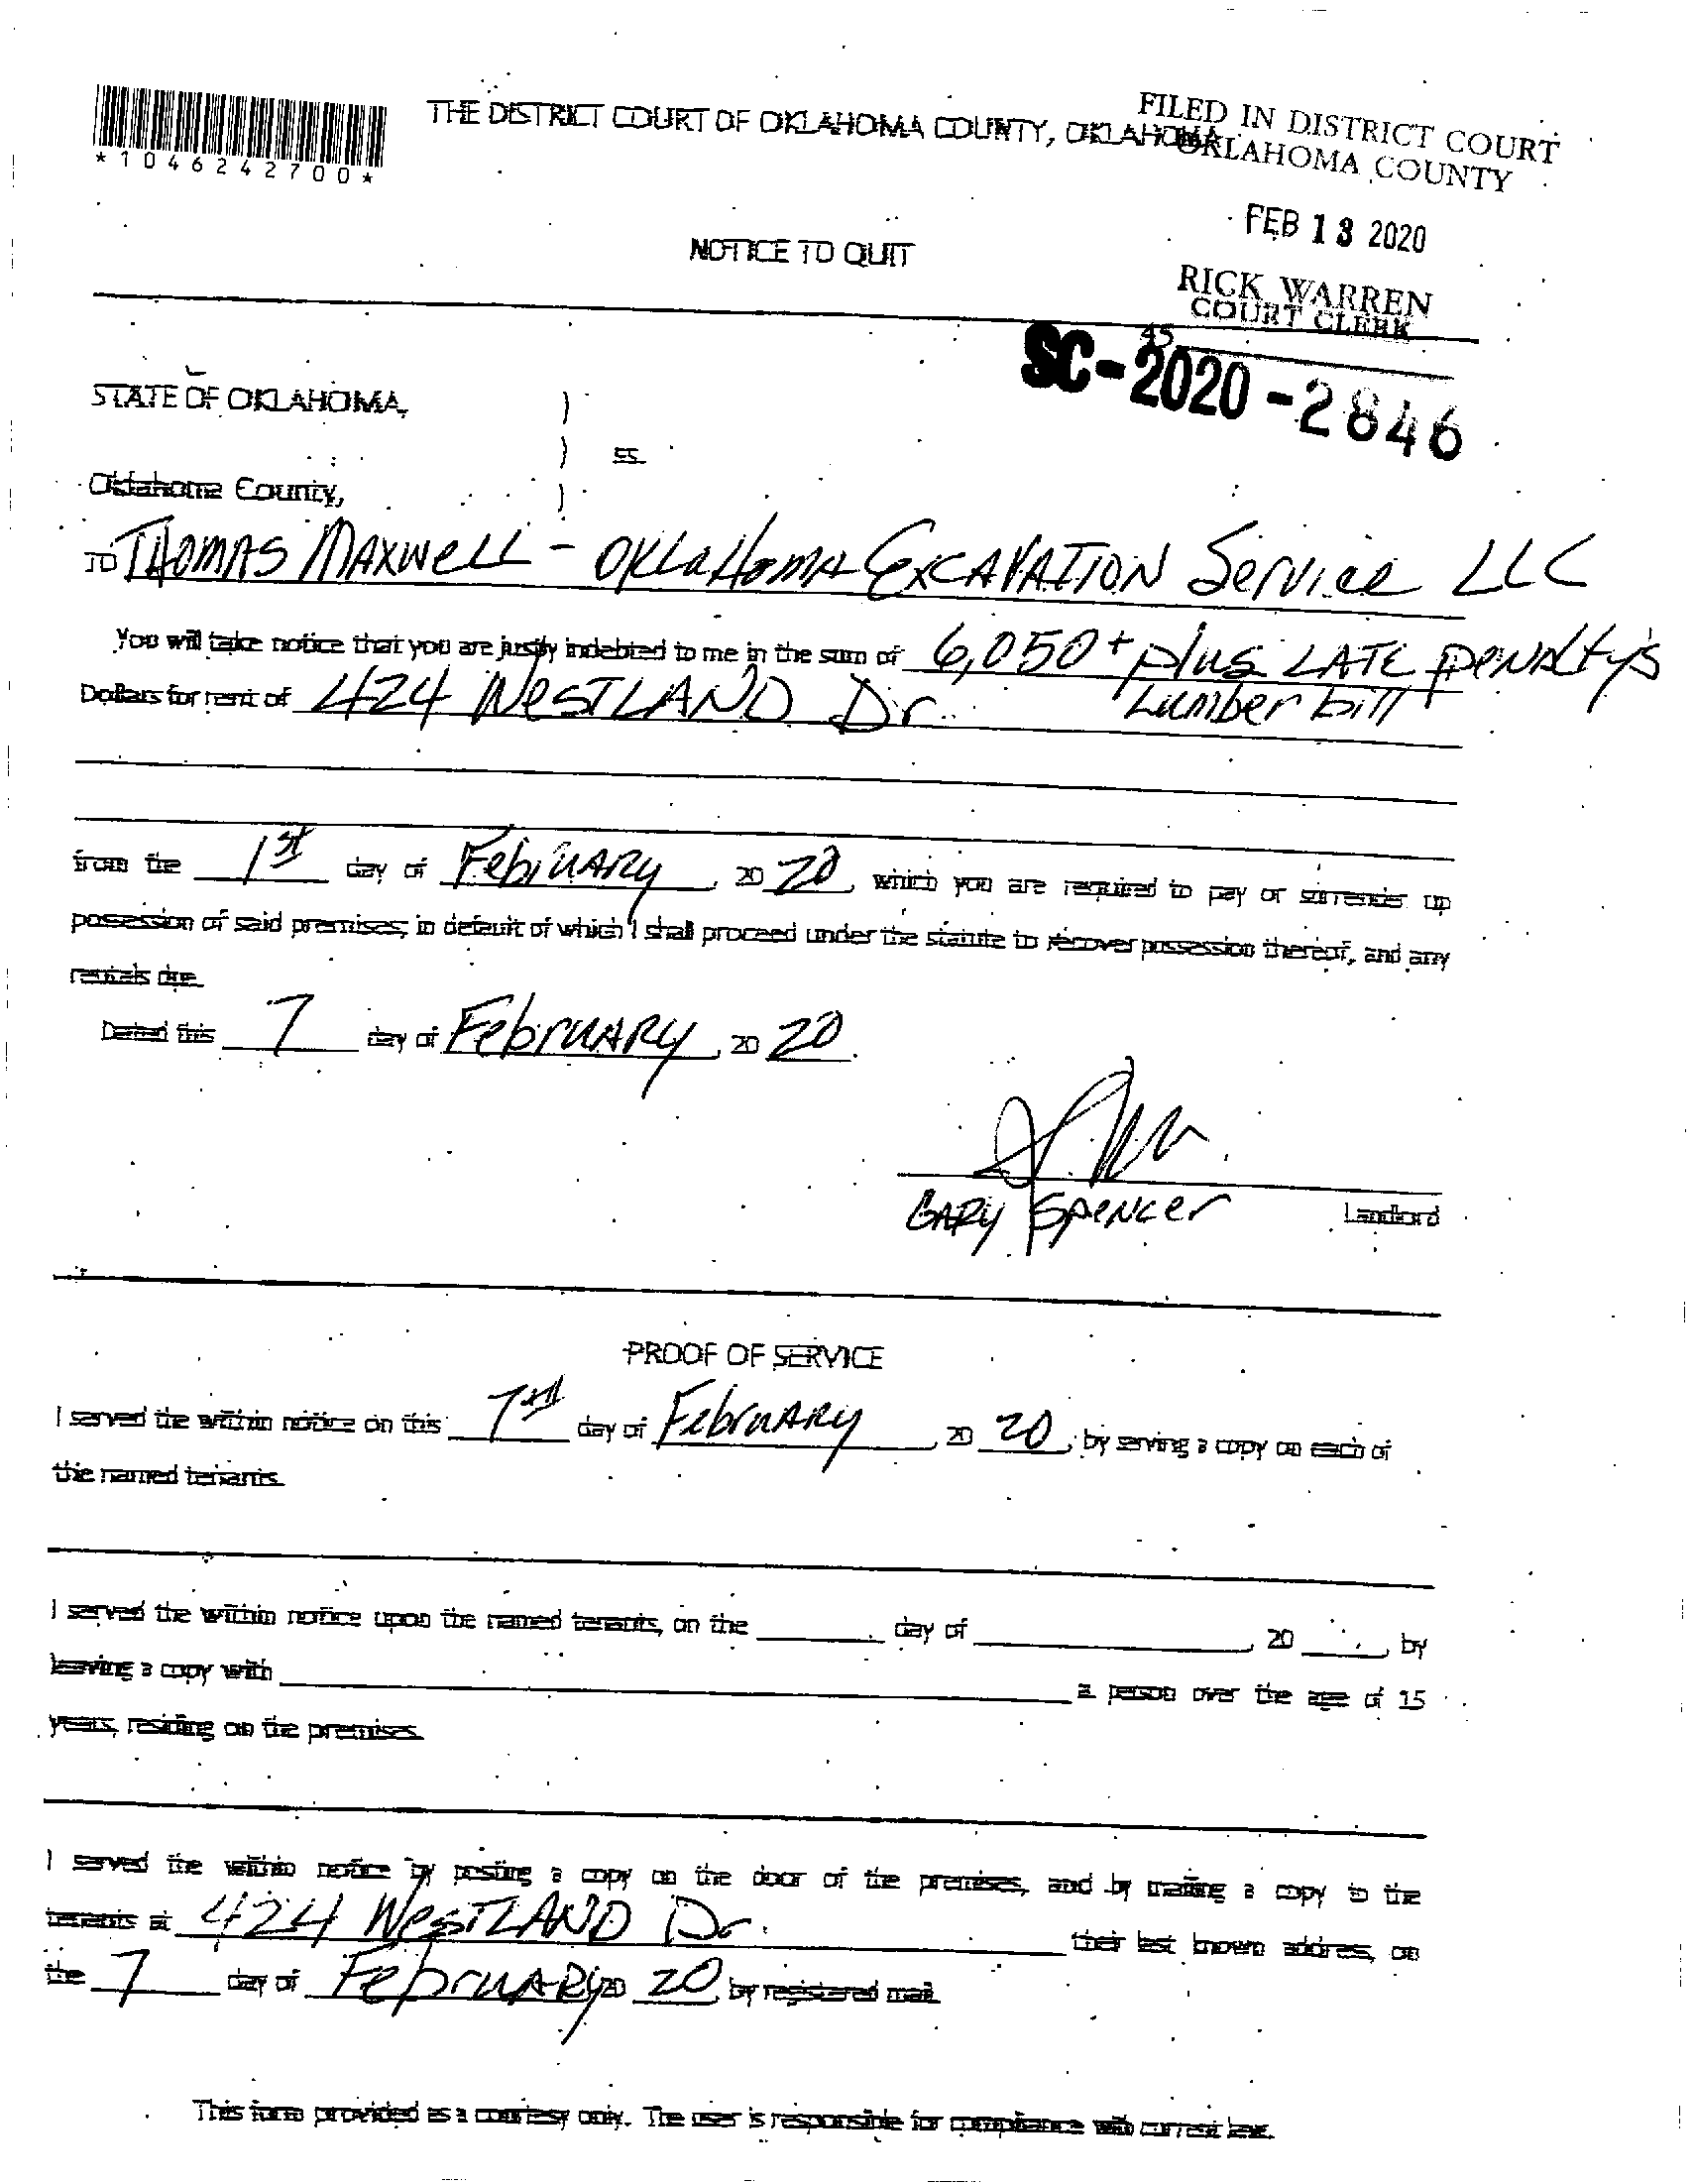 THE DISTRICT COURT OF OKLAHOMA COUNTY, OKLAHOMA
FILED IN DISTRICT COURT
OKLAHOMA COUNTY
*1046242700*
FEB 13 2020
NOTICE TO QUIT
RICK WARREN
COURT CLERK
45
SC-2020-2846
STATE OF OKLAHOMA, )
) ss.
Oklahoma County, )
TO THOMAS MAXWELL - OKLAHOMA EXCAVATION Service LLC
You will take notice that you are justly indebted to me in the sum of 6,050+ plus LATE PENALTY'S
Dollars for rent of 424 WESTLAND Dr. Lumber bill
from the 1st day of February, 2020, which you are required to pay or surrender up
possession of said premises; in default of which I shall proceed under the statute to recover possession thereof, and any
rentals due.
Dated this 7 day of February, 2020.
GARY SPENCER Landlord
PROOF OF SERVICE
I served the within notice on this 7 day of February, 2020, by serving a copy on each of
the named tenants.
I served the within notice upon the named tenants, on the ____ day of ____, 20 ____, by
leaving a copy with ____ a person over the age of 15
years, residing on the premises.
I served the within notice by posting a copy on the door of the premises, and by mailing a copy to the
tenants at 424 WESTLAND Dr. their last known addres, on
the 7 day of February 2020, by registered mail.
This form provided as a courtesy only. The user is responsible for compliance with current law.